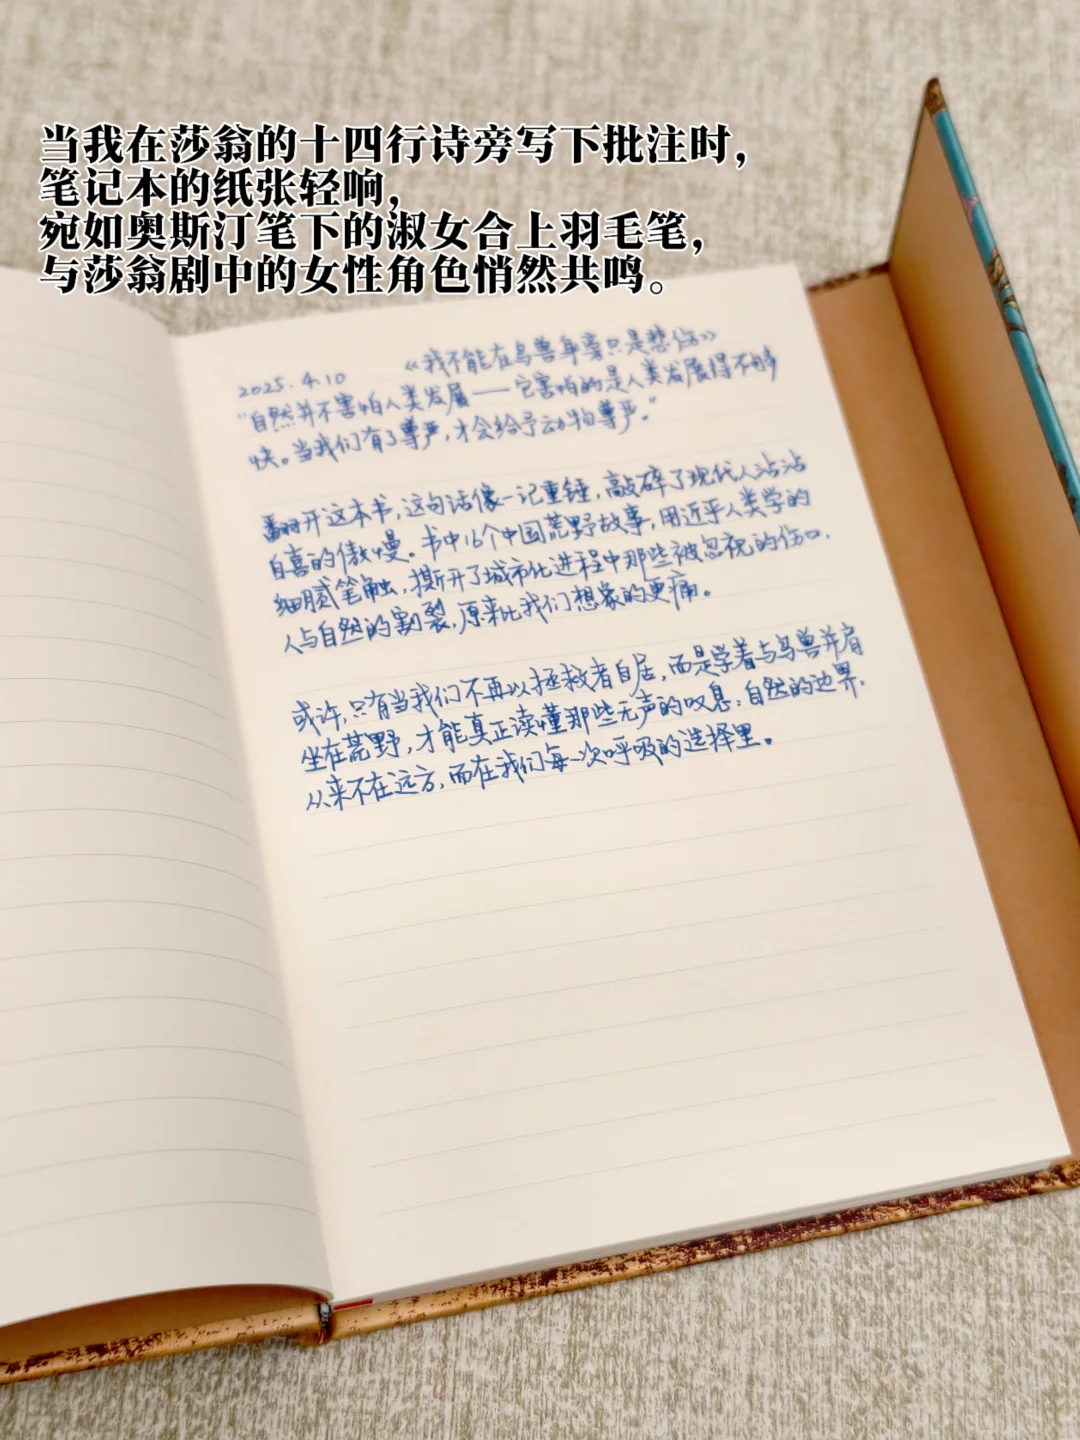 当我在莎翁的十四行诗旁写下批注时，
笔记本的纸张轻响，
宛如奥斯汀笔下的淑女合上羽毛笔，
与莎翁剧中的女性角色悄然共鸣。
2025.4.10 《我不能在鸟兽身旁只是悲伤》
“自然并不害怕人类发展——它害怕的是人类发展得不够
快。当我们有了尊严，才会给予动物尊严。”
翻开这本书，这句话像一记重锤，敲碎了现代人沾沾
自喜的傲慢。书中16个中国荒野故事，用近乎人类学的
细腻笔触，撕开了城市化进程中那些被忽视的伤口，
人与自然的割裂，原来比我们想象的更痛。
或许，只有当我们不再以拯救者自居，而是学着与鸟兽并肩
坐在荒野，才能真正读懂那些无声的叹息：自然的边界，
从来不在远方，而在我们每一次呼吸的选择里。